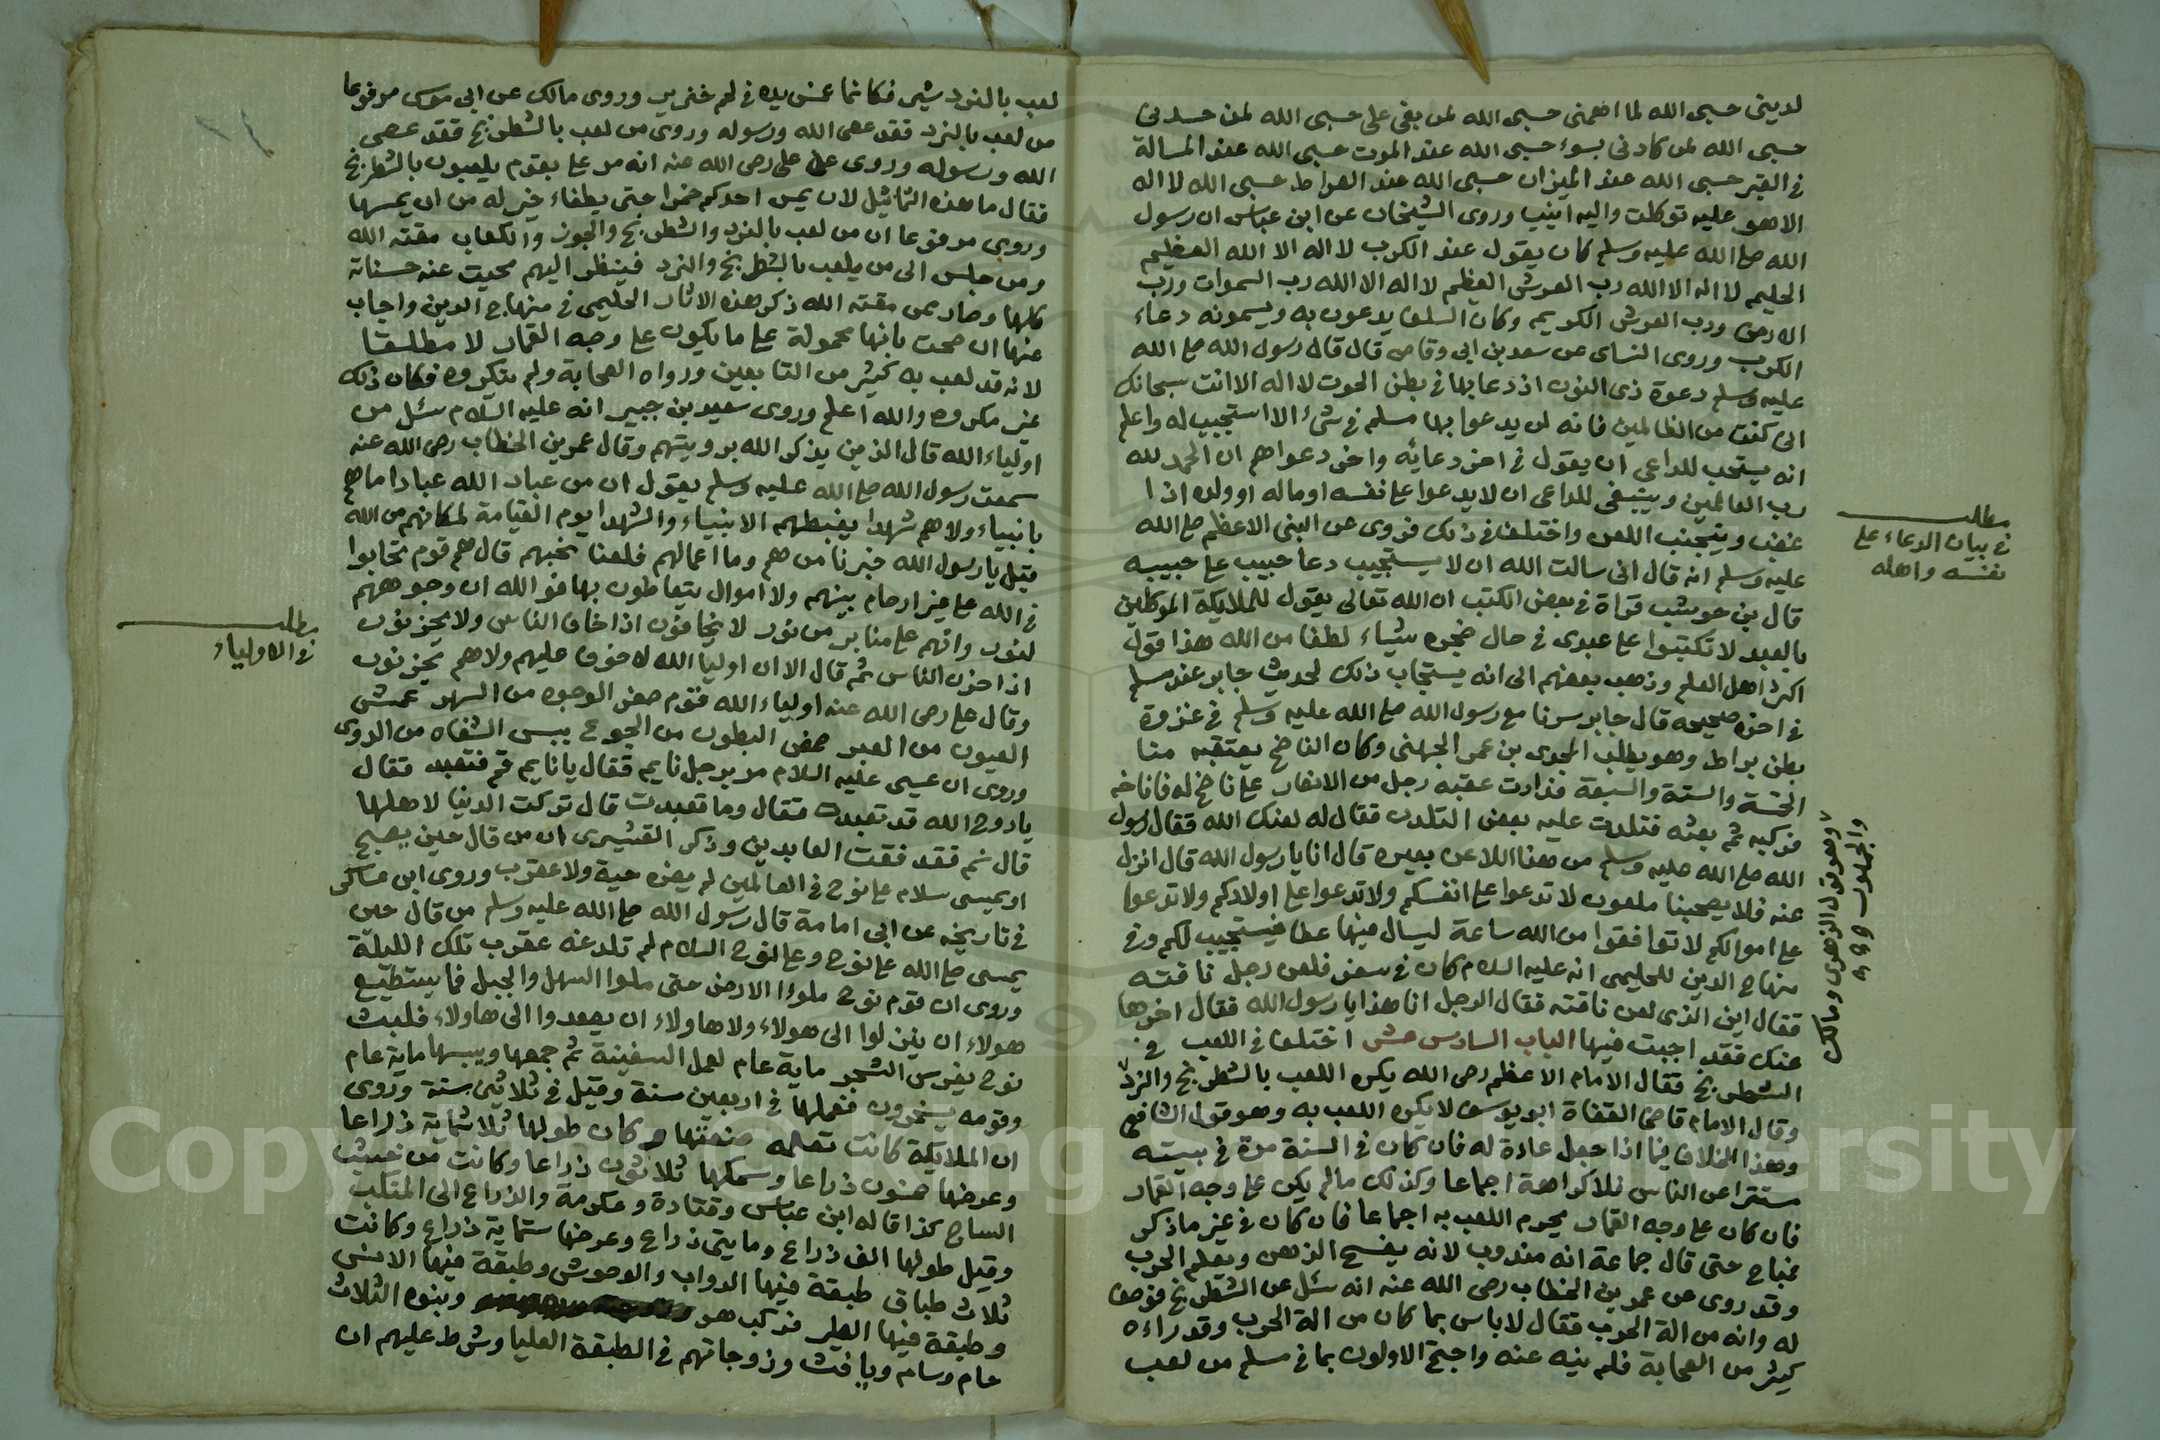 لديني حسبي الله لما اهمني حسبي الله لمن بغى على حسبي الله لمن حسدني
حسبي الله لمن كادني بسوء حسبي الله عند الموت حسبي الله عند المسالة
في القبر حسبي الله عند الميزان حسبي الله عند الصراط حسبي الله لا اله
الا هو عليه توكلت واليه انيب وروى الشيخان عن ابن عباس ان رسول
الله صلى الله عليه وسلم كان يقول عند الكرب لا اله الا الله العظيم
الحليم لا اله الا الله رب العرش العظيم لا اله الا الله رب السموات ورب
الارض ورب العرش الكريم وكان السلف يدعون به ويسمونه دعاء
الكرب وروى النساى عن سعد بن ابي وقاص قال قال رسول الله صلى الله
عليه وسلم دعوة ذي النون اذ دعا بها في بطن الحوت لا اله الا انت سبحانك
اني كنت من الظالمين فانه لن يدعوا بها مسلم في شيء الا استجيب له واعلم
انه يستحب للداعي ان يقول في اخر دعائه واخر دعواهم ان الحمد لله
رب العالمين وينبغي للداعي ان لا يدعوا على نفسه او ماله او ولده اذا
غضب ويتجنب اللعن واختلف في ذلك فروى عن النبي الاعظم صلى الله
عليه وسلم انه قال اني سالت الله ان لا يستجيب دعا حبيب على حبيبه
قال بن حوشب قراة في بعض الكتب ان الله تعالى يقول للملايكة الموكلين
بالعبد لا تكتبوا على عبدي في حال ضجره شياء لطفا من الله هذا قول
اكثر اهل العلم وذهب بعضهم الى انه يستجاب ذلك لحديث جابر عند مسلم
في اخر صحيحه قال جابر سرنا مع رسول الله صلى الله عليه وسلم في غزوة
بطن براط وهو يطلب المجدى بن عمر الجهني وكان الناضح يعتقبه منا
الخمسة والستة والسبعة فدارت عقبه رجل من الانصار على ناضح له فاناخه
فركبه ثم بعثه فتلدن عليه بعض التلدن فقال له لعنك الله فقال رسول
الله صلى الله عليه وسلم من هذا اللاعن بعيره قال انا يا رسول الله قال انزل
عنه فلا يصحبنا ملعون لا تدعوا على انفسكم ولا تدعوا على اولادكم ولا تدعوا
على اموالكم لا توافقوا من الله ساعة ليسال فيها عطا فيستجيب لكم وفي
منهاج الدين للحليمي انه عليه السلام كان في سفر فلعن رجل ناقته
فقال اين الذي لعن ناقته فقال الرجل انا هذا يا رسول الله فقال اخرها
عنك فقد اجبت فيها الباب السادس عشر اختلف في اللعب في
الشطرنج فقال الامام الاعظم رضي الله يكره اللعب بالشطرنج والنرد
وقال الامام قاضي القضاة ابو يوسف لا يكره اللعب به وهو قول الشافعي
وهذا الخلاف فيما اذا جعل عادة له فان كان في السنة مرة في بيته
مستترا عن الناس فلا كراهة اجماعا وكذلك مالم يكن على وجه القمار
فان كان على وجه القمار يحرم اللعب به اجماعا فان كان في غير ماذكر
فمباح حتى قال جماعة انه مندوب لانه يفسح الذهن ويعلم الحرب
وقد روى عن عمر بن الخطاب رضي الله عنه انه سئل عن الشطرنج فوصف
له وانه من الة الحرب فقال لا باس بما كان من الة الحرب وقد راءه
كثير من الصحابة فلم ينه عنه واحتج الاولون بما في مسلم من لعب
مطلب
في بيان الدعاء على
نفسه واهله
وهو قول الزهري ومالك
لعب بالنرد شير فكانما غمس يده في لحم خنزير وروى مالك عن ابي موسى مرفوعا
من لعب بالنرد فقد عصى الله ورسوله وروى من لعب بالشطرنج فقد عصى
الله ورسوله وروى عن علي رضي الله عنه انه مر على بقوم يلعبون بالشطرنج
فقال ما هذه التماثيل لان يمس احدكم جمرا حتى يطفاء خير له من ان يمسها
وروى مرفوعا ان من لعب بالنرد والشطرنج والجوز والكعاب مقته الله
ومن جلس الى من يلعب بالشطرنج والنرد فينظر اليهم محيت عنه حسناته
كلها وصار ممن مقته الله ذكر هذه الاثار الحليمي في منهاج الدين واجاب
عنها ان صحت بانها محمولة على ما يكون على وجه القمار لا مطلقا
لانه قد لعب به كثير من التابعين ورواه الصحابة ولم ينكروه فكان ذلك
غير مكروه والله اعلم وروى سعيد بن جبير انه عليه السلام سئل من
اولياء الله قال الذين يذكر الله برويتهم وقال عمر بن الخطاب رضي الله عنه
سمعت رسول الله صلى الله عليه وسلم يقول ان من عباد الله عبادا ماهم
بانبياء ولا هم شهدا يغبطهم الانبياء والشهدا يوم القيامة لمكانهم من الله
قيل يا رسول الله خبرنا من هم وما اعمالهم فلعنا نحبهم قال هم قوم تحابوا
في الله على غير ارحام بينهم ولا اموال يتعاطون بها فوالله ان وجوههم
لنور وانهم على منابر من نور لا يخافون اذا خاف الناس ولا يحزنون
اذا حزن الناس ثم قال الا ان اوليا الله لا خوف عليهم ولا هم يحزنون
وقال علي رضي الله عنه اولياء الله قوم صفر الوجوه من السهر عمش
العيون من العبر خمص البطون من الجوع يبس الشفاه من الدوى
وروى ان عيسى عليه السلام مر برجل نايم فقال يا نايم قم فتعبد فقال
يا روح الله قد تعبدت فقال وما تعبدت قال تركت الدنيا لاهلها
قال نم فقد فقت العابدين وذكر القشيري ان من قال حين يصبح
او يمسى سلام على نوح في العالمين لم يضره حية ولا عقرب وروى ابن عساكر
في تاريخه عن ابي امامة قال رسول الله صلى الله عليه وسلم من قال حين
يمسى صلى الله على نوح وعلى نوح السلام لم تلدغه عقرب تلك الليلة
وروى ان قوم نوح ملوءا الارض حتى ملوا السهل والجبل فما يستطيع
هولاء ان ينزلوا الى هولاء ولا هاولاء ان يصعدوا الى هاولاء فلبث
نوح يغرس الشجر ماية عام لعمل السفينة ثم جمعها ويبسها ماية عام
وقومه يسخرون فعملها في اربعين سنة وقيل في ثلاثين سنة وروى
ان الملايكة كانت تعلمه صنعتها وكان طولها ثلاثماية ذراعا
وعرضها خمسون ذراعا وسمكها ثلاثون ذراعا وكانت من خشب
الساج كذا قاله ابن عباس وقتادة وعكرمة والذراع الى المنكب
وقيل طولها الف ذراع ومايتي ذراع وعرضها ستماية ذراع وكانت
ثلاث طباق طبقة فيها الدواب والوحوش وطبقة فيها الانس
وطبقة فيها الطير فركب هو وبنوه الثلاث
حام وسام ويافث وزوجاتهم في الطبقة العليا وشرط عليهم ان
مطلب
في الاولياء